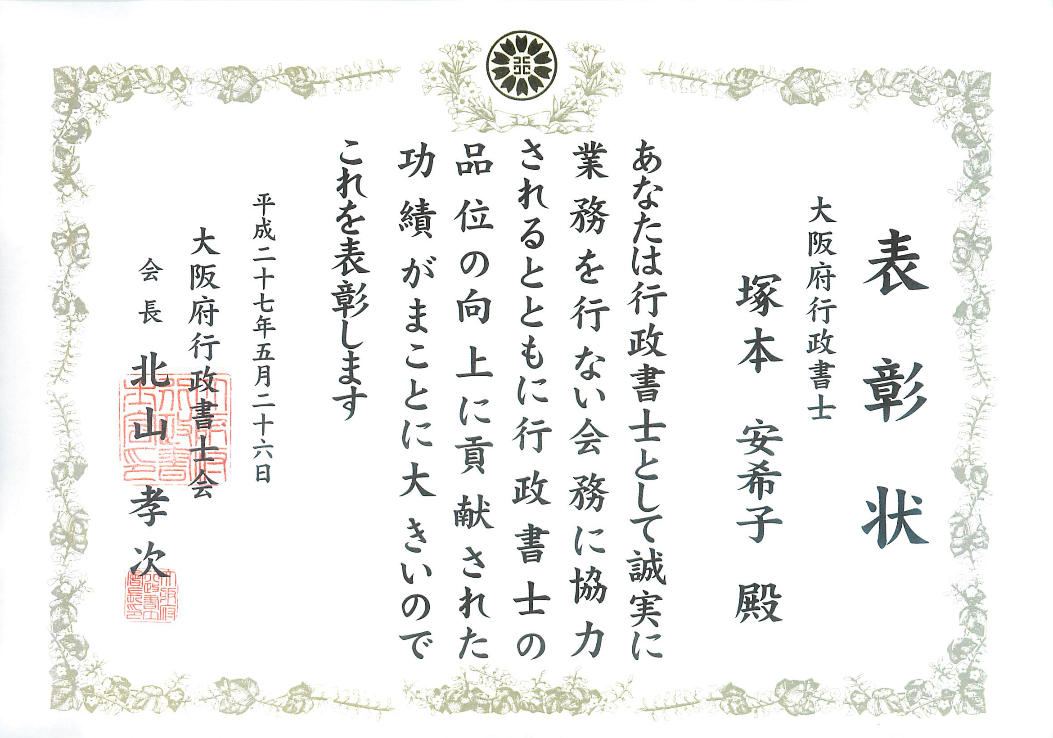 表彰状
大阪府行政書士
塚本 安希子 殿
あなたは行政書士として誠実に
業務を行ない会務に協力
されるとともに行政書士の
品位の向上に貢献された
功績がまことに大きいので
これを表彰します
平成二十七年五月二十六日
大阪府行政書士会
会長 北山孝次